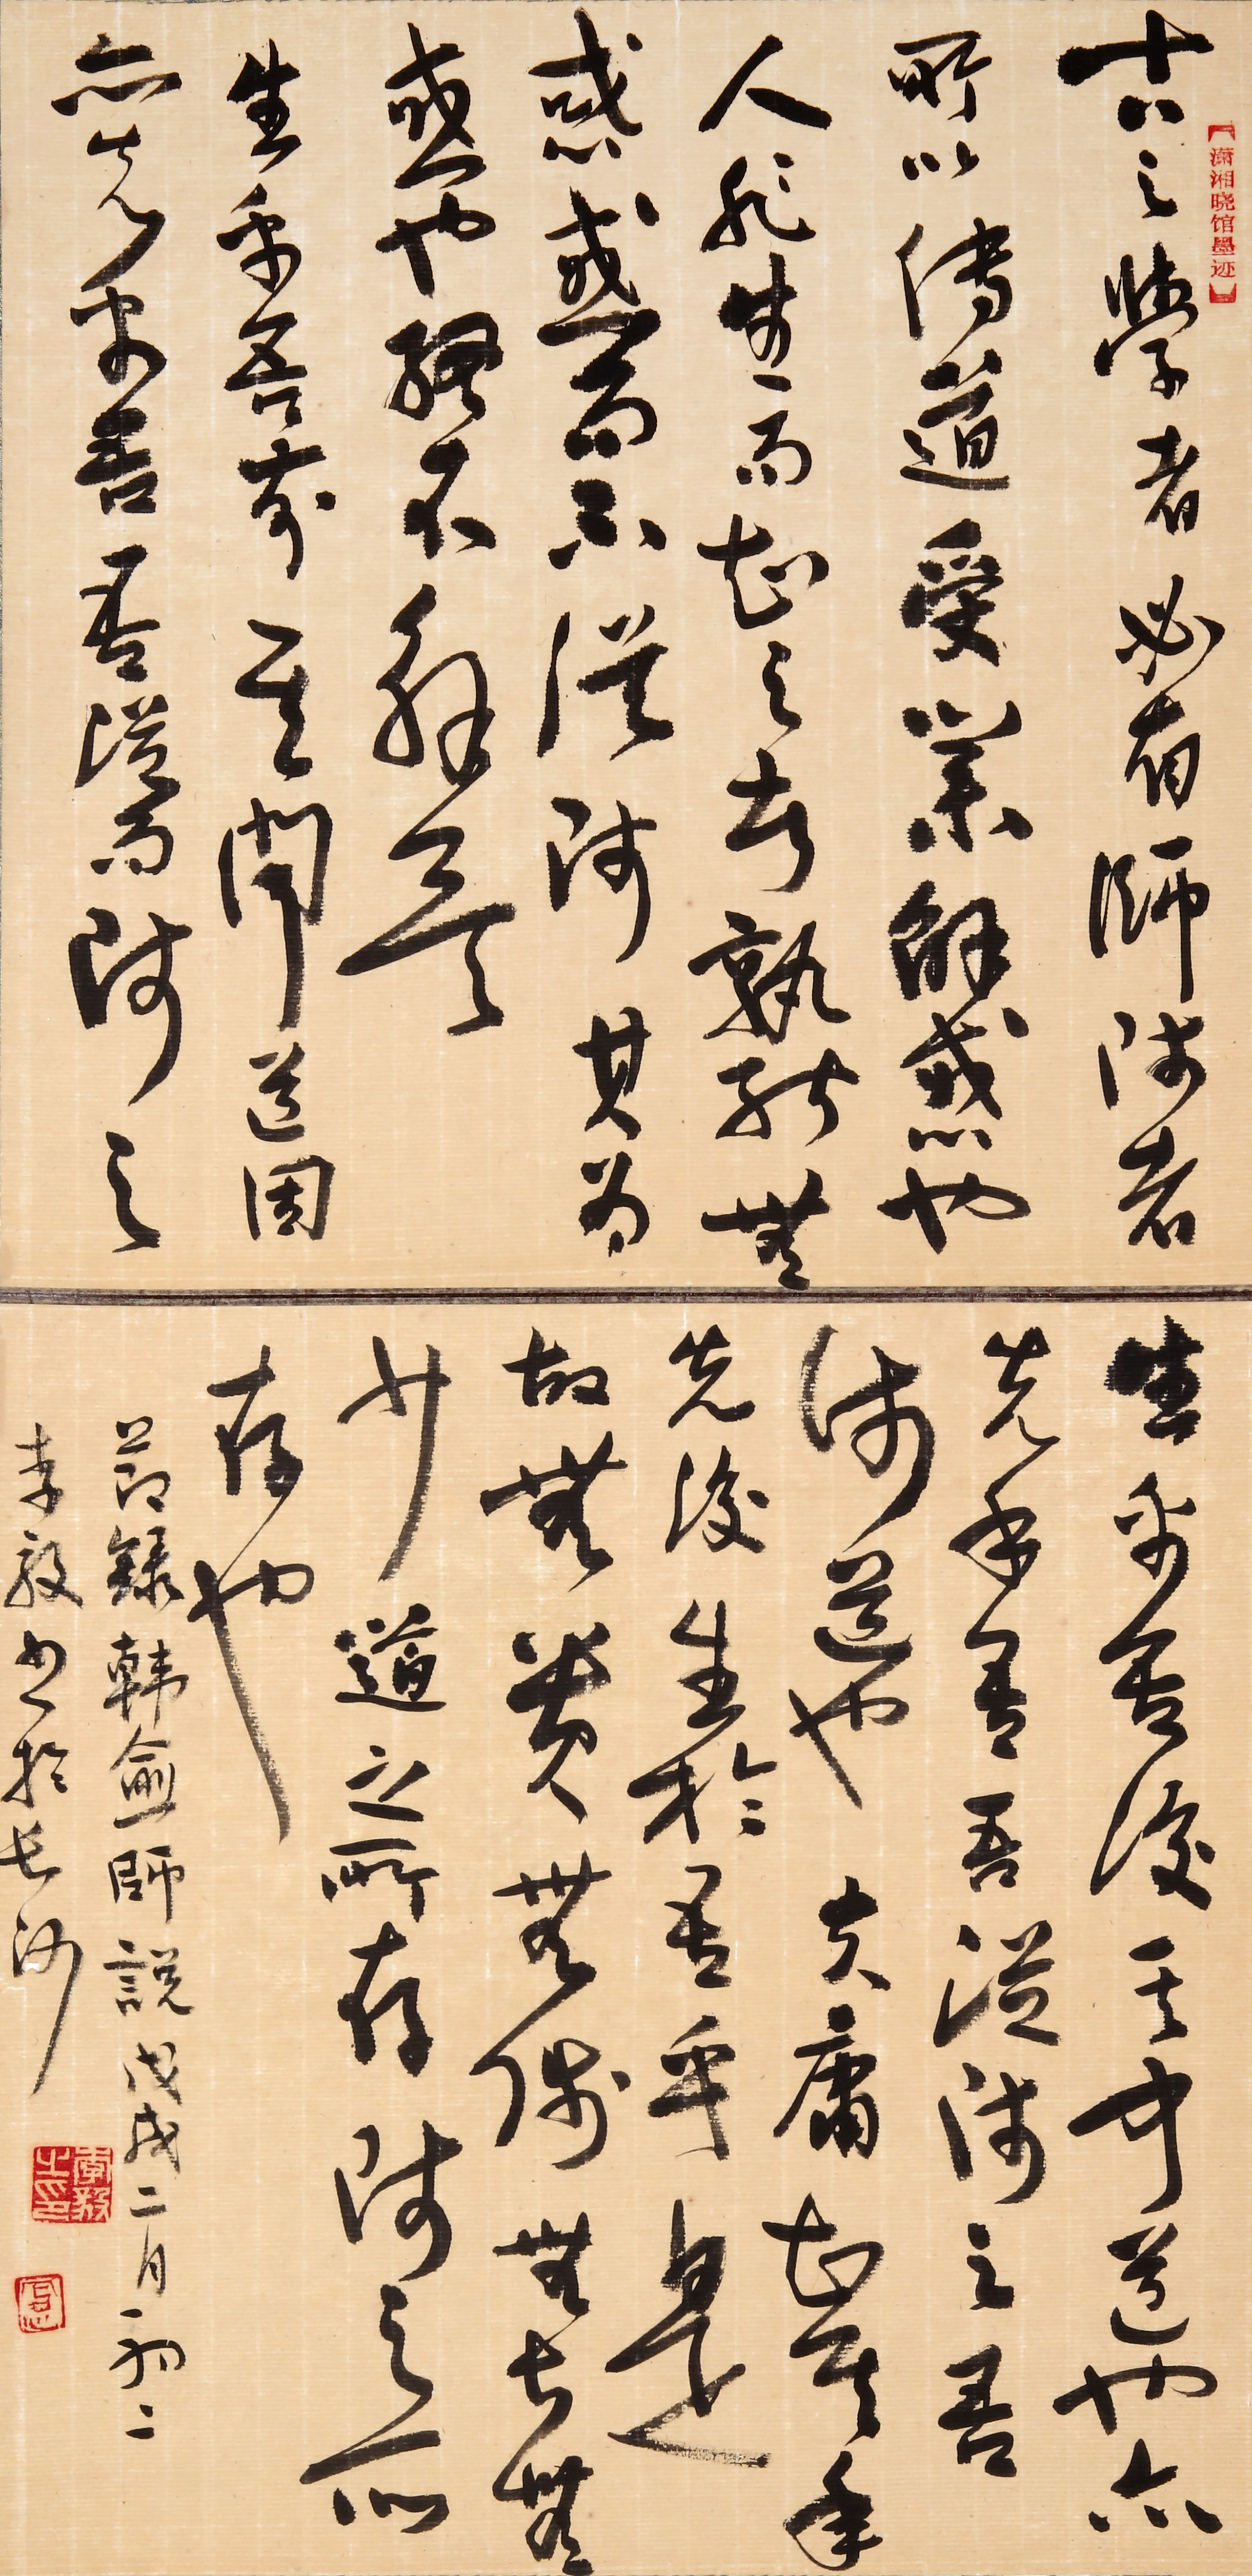 【潇湘晓馆墨迹】
古之學者必有師師者
所以傳道受業解惑也
人非生而知之者孰能無
惑惑而不從師其為
惑也終不解矣
生乎吾前其聞道固
亦先乎吾吾從而師之
生乎吾後其聞道也亦
先乎吾吾從師之吾
師道也夫庸知其年
先後生於吾乎是
故無貴無賤無長無
少道之所存師之所
存也
節錄韓愈師說戊戌二月初二
李毅書於長沙
李毅之印